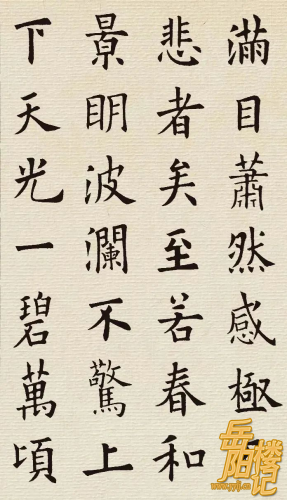 滿目蕭然感極而
悲者矣至若春和
景明波瀾不驚上
下天光一碧萬頃
岳阳楼记